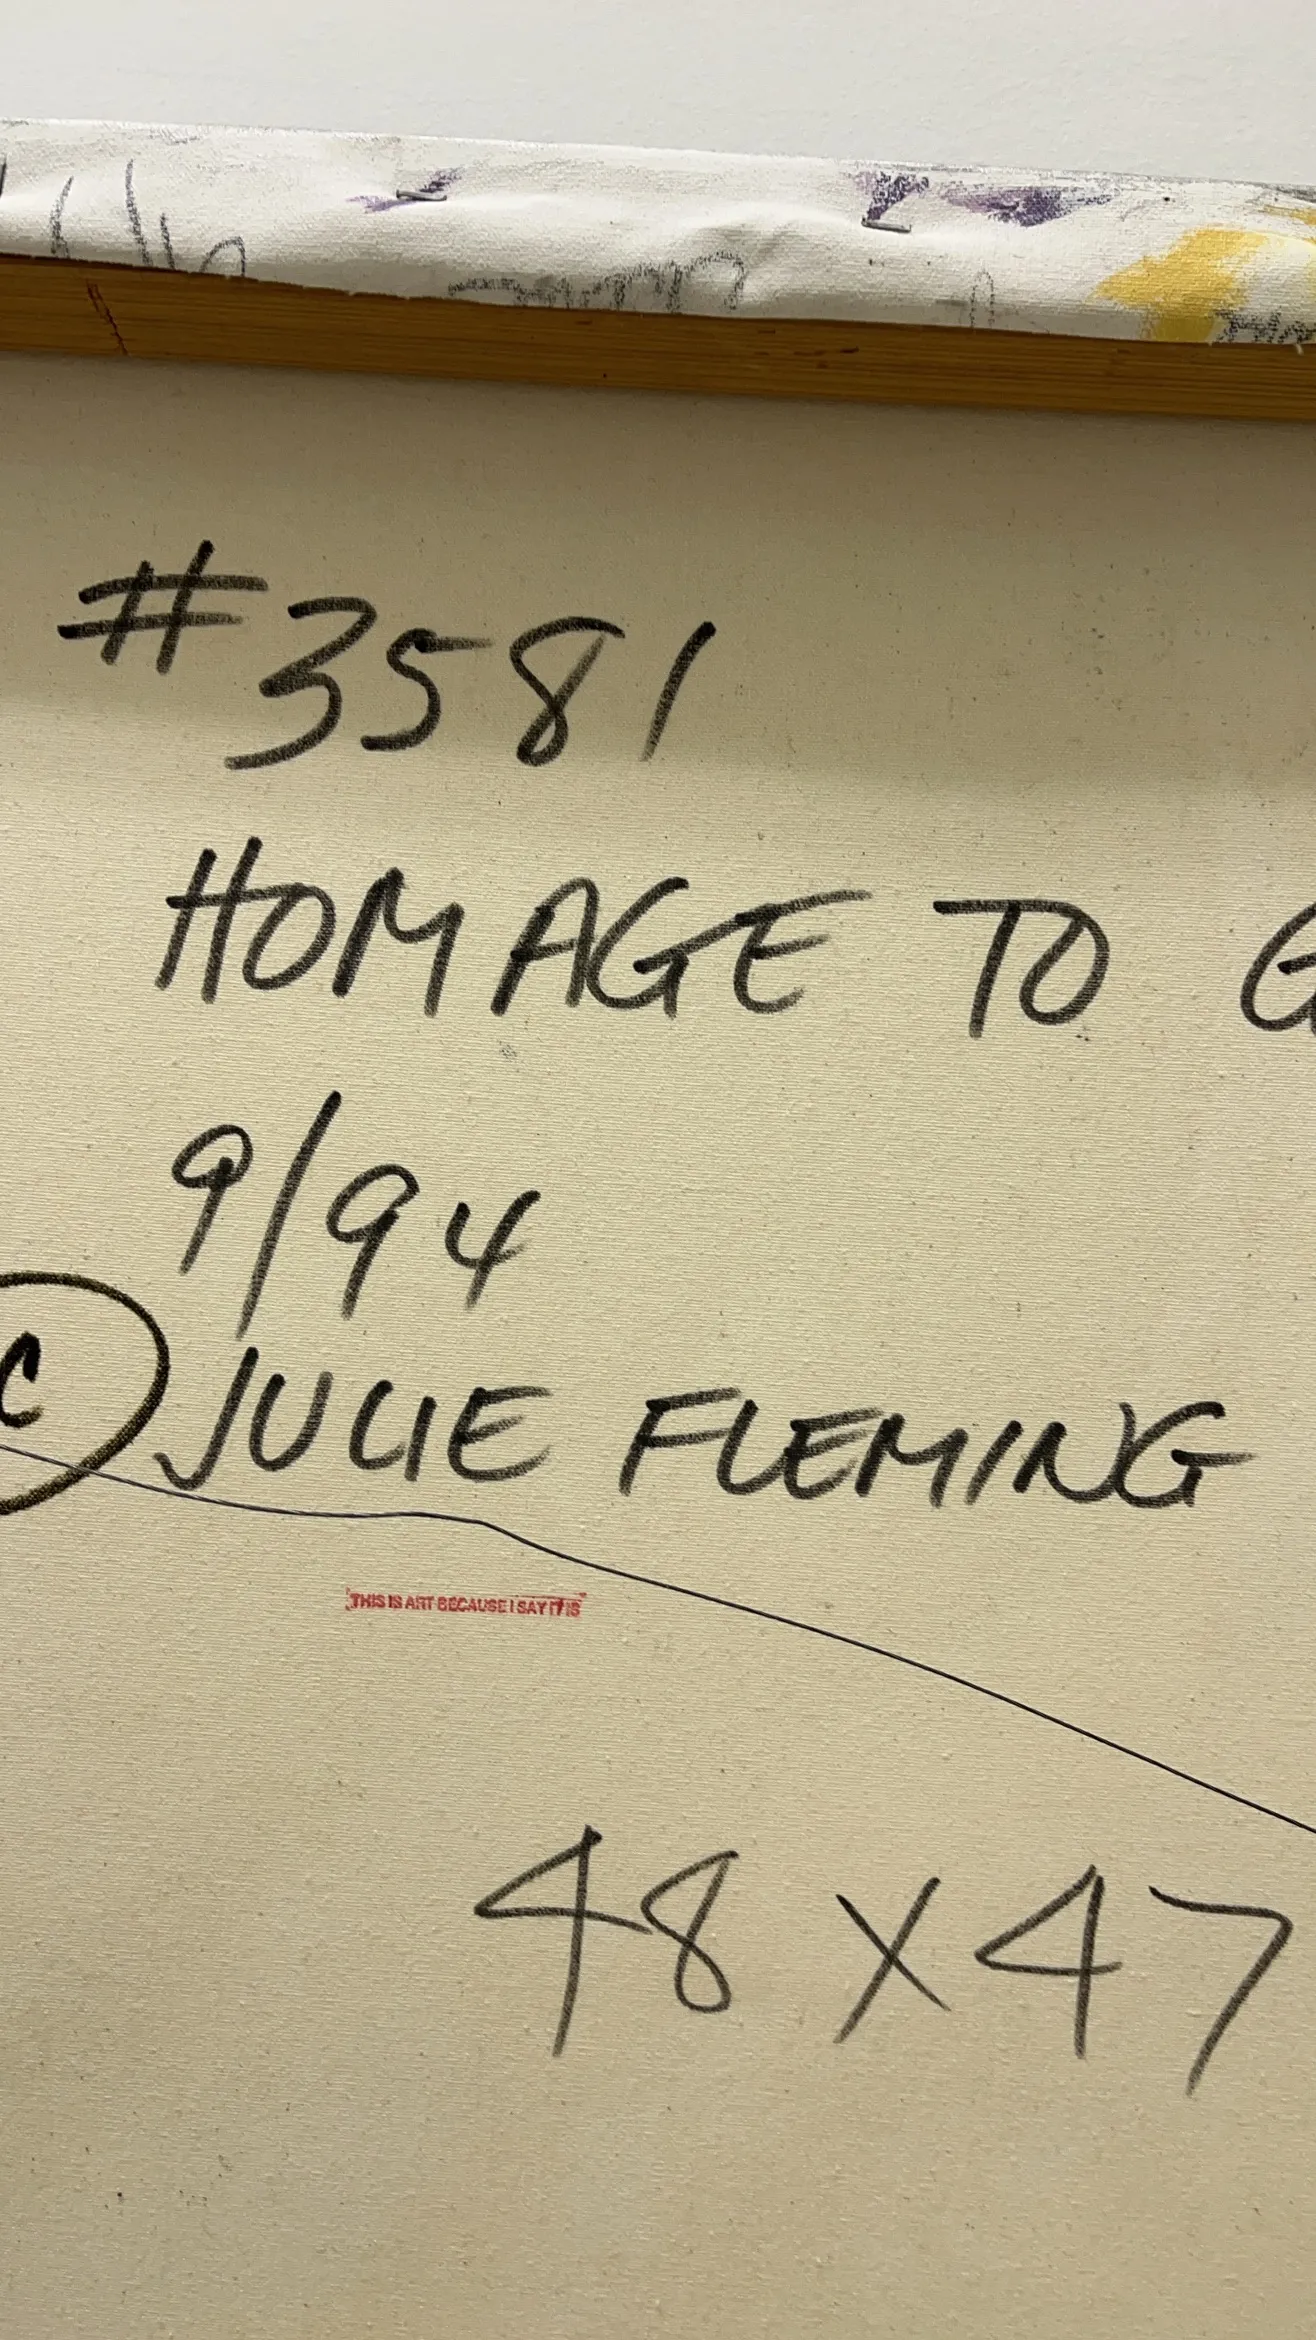 #3581
HOMAGE TO G
9/94
© JULIE FLEMING
THIS IS ART BECAUSE I SAY IT IS
48 x 47